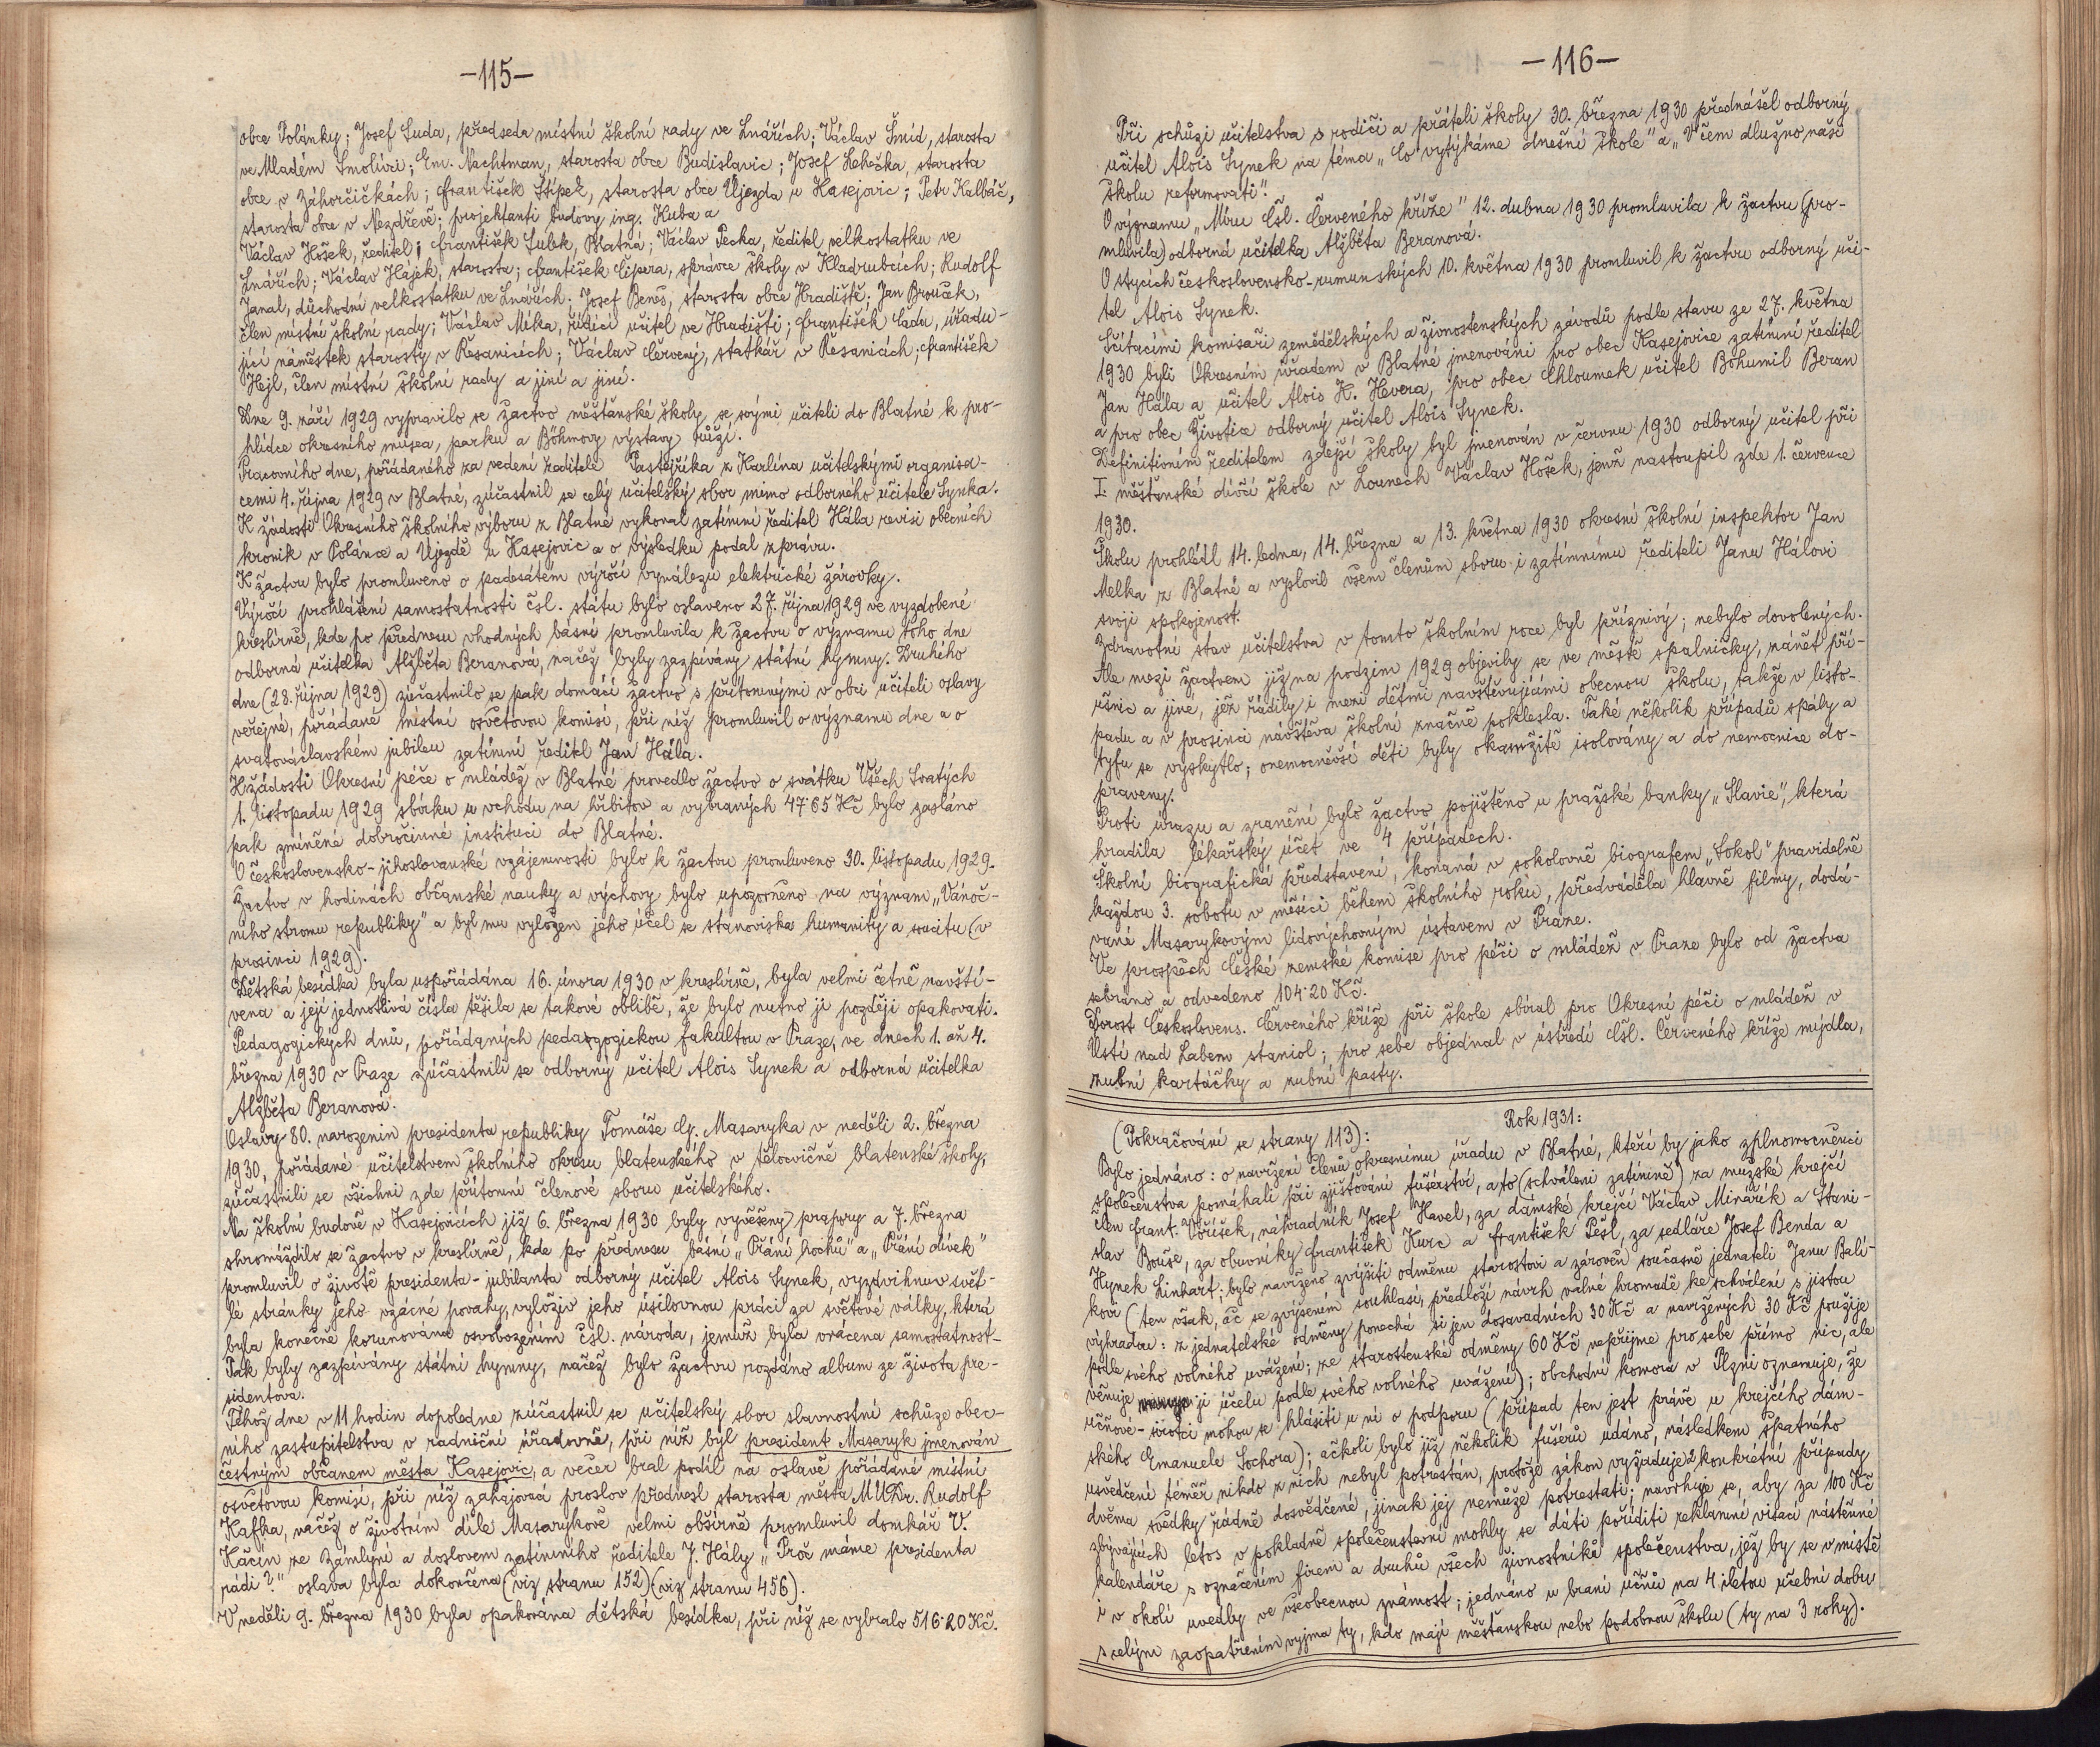 -115-
obce Polánky; Josef Suda, předseda místní školní rady ve Lnářích; Václav Šmíd, starosta
ve Mladém Smolivci; Em. Nachtman, starosta obce Budislavic; Josef Lehečka, starosta
obce v Záhorčičkách; František Štípek, starosta obce Újezda u Kasejovic; Petr Kalbáč,
starosta obce v Nezdřevě; projektanti budovy ing. Kuba a
Václav Hošek, ředitel; František Šulek, Blatná; Václav Pecka, ředitel velkostatku ve
Lnářích; Václav Hájek, starosta; František Čipera, správce školy v Kladrubcích; Rudolf
Janal, důchodní velkostatku ve Lnářích; Josef Beneš, starosta obce Hradiště; Jan Brouček,
člen místní školní rady; Václav Míka, řídící učitel ve Hradišti; František Cadu, úřadu-
jící náměstek starosty v Řesanicích; Václav Červený, statkář v Řesanicích; František
Hejl, člen místní školní rady a jiní a jiní.
Dne 9. září 1929 vypravilo se žactvo měšťanské školy se svými učiteli do Blatné k pro-
hlídce okresního musea, parku a Böhmovy výstavy růží.
Pracovního dne, pořádaného za vedení ředitele Pastejříka z Karlína učitelskými organisa-
cemi 4. října 1929 v Blatné, zúčastnil se celý učitelský sbor mimo odborného učitele Synka.
K žádosti Okresního školního výboru z Blatné vykonal zatímní ředitel Hála revisi obecních
kronik v Polánce a Újezdě u Kasejovic a o výsledku podal zprávu.
K žactvu bylo promluveno o padesátém výročí vynálezu elektrické žárovky.
Výročí prohlášení samostatnosti čsl. státu bylo oslaveno 27. října 1929 ve vyzdobené
kreslírně, kde po přednesu vhodných básní promluvila k žactvu o významu toho dne
odborná učitelka Alžběta Beranová, načež byly zazpívány státní hymny. Druhého
dne (28. října 1929) zúčastnilo se pak domácí žactvo s přítomnými v obci učiteli oslavy
veřejné, pořádané místní osvětovou komisí, při níž promluvil o významu dne a o
svatováclavském jubileu zatímní ředitel Jan Hála.
K žádosti Okresní péče o mládež v Blatné provedlo žactvo o svátku Všech Svatých
1. listopadu 1929 sbírku u vchodu na hřbitov a vybraných 47·65 Kč bylo zasláno
pak zmíněné dobročinné instituci do Blatné.
O československo-jihoslovanské vzájemnosti bylo k žactvu promluveno 30. listopadu 1929.
Žactvo v hodinách občanské nauky a výchovy bylo upozorněno na význam „Vánoč-
ního stromu republiky" a byl mu vyložen jeho účel se stanoviska humanity a soucitu (v
prosinci 1929).
Dětská besídka byla uspořádána 16. února 1930 v kreslírně, byla velmi četně navští-
vena a její jednotlivá čísla těšila se takové oblibě, že bylo nutno ji později opakovati.
Pedagogických dnů, pořádaných pedagogickou fakultou v Praze, ve dnech 1. až 4.
března 1930 v Praze zúčastnili se odborný učitel Alois Synek a odborná učitelka
Alžběta Beranová.
Oslavy 80. narozenin presidenta republiky Tomáše G. Masaryka v neděli 2. března
1930, pořádané učitelstvem školního okresu blatenského v tělocvičně blatenské školy,
zúčastnili se všichni zde přítomní členové sboru učitelského.
Na školní budově v Kasejovicích již 6. března 1930 byly vyvěšeny prapory a 7. března
shromáždilo se žactvo v kreslírně, kde po přednesu básní „Přání hochů" a „Přání dívek"
promluvil o životě presidenta-jubilanta odborný učitel Alois Synek, vyzdvihnuv svět-
lé stránky jeho vzácné povahy, vyloživ jeho úsilovnou práci za světové války, která
byla konečně korunována osvobozením čsl. národa, jemuž byla vrácena samostatnost-
Pak byly zazpívány státní hymny, načež bylo žactvu rozdáno album ze života pre-
sidentova.
Téhož dne v 11 hodin dopoledne zúčastnil se učitelský sbor slavnostní schůze obec-
ního zastupitelstva v radniční úřadovně, při níž byl president Masaryk jmenován
čestným občanem města Kasejovic, a večer bral podíl na oslavě pořádané místní
osvětovou komisí, při níž zahajovací proslov přednesl starosta města MUDr. Rudolf
Kafka, načež o životním díle Masarykově velmi obšírně promluvil domkář V.
Káčín ze Zámlyní a doslovem zatímního ředitele J. Hály „Proč máme presidenta
rádi?" oslava byla dokončena (viz stranu 152)(viz stranu 456).
V neděli 9. března 1930 byla opakována dětská besídka, při níž se vybralo 516·20 Kč.
-116-
Při schůzi učitelstva s rodiči a přáteli školy 30. března 1930 přednášel odborný
učitel Alois Synek na téma „Co vytýkáme dnešní škole" a „V čem dlužno naši
školu reformovati".
O významu „Míru Čsl. Červeného kříže" 12. dubna 1930 promluvila k žactvu (pro-
mluvila) odborná učitelka Alžběta Beranová.
O stycích československo-rumunských 10. května 1930 promluvil k žactvu odborný uči-
tel Alois Synek.
Sčítacími komisaři zemědělských a živnostenských závodů podle stavu ze 27. května
1930 byli Okresním úřadem v Blatné jmenováni pro obec Kasejovice zatímní ředitel
Jan Hála a učitel Alois K. Hevera, pro obec Chloumek učitel Bohumil Beran
a pro obec Životice odborný učitel Alois Synek.
Definitivním ředitelem zdejší školy byl jmenován v červnu 1930 odborný učitel při
I. měšťanské dívčí škole v Lounech Václav Hošek, jenž nastoupil zde 1. července
1930.
Školu prohlédl 14. ledna, 14. března a 13. května 1930 okresní školní inspektor Jan
Melka z Blatné a vyslovil všem členům sboru i zatímnímu řediteli Janu Hálovi
svoji spokojenost.
Zdravotní stav učitelstva v tomto školním roce byl příznivý; nebylo dovolených.
Ale mezi žactvem již na podzim 1929 objevily se ve městě spalničky, zánět pří-
ušnic a jiné, jež řádily i mezi dětmi navštěvujícími obecnou školu, takže v listo-
padu a v prosinci návštěva školní značně poklesla. Také několik případů spály a
tyfu se vyskytlo; onemocněvší děti byly okamžitě isolovány a do nemocnice do-
praveny.
Proti úrazu a zranění bylo žactvo pojištěno u pražské banky „Slavie", která
hradila lékařský účet ve 4 případech.
Školní biografická představení, konaná v sokolovně biografem „Sokol" pravidelně
každou 3. sobotu v měsíci během školního roku, předváděla hlavně filmy, dodá-
vané Masarykovým lidovýchovným ústavem v Praze.
Ve prospěch České zemské komise pro péči o mládež v Praze bylo od žactva
sebráno a odvedeno 104·20 Kč.
Dorost Českoslovens. Červeného kříže při škole sbíral pro Okresní péči o mládež v
Ústí nad Labem staniol; pro sebe objednal v ústředí Čsl. Červeného kříže mýdla,
zubní kartáčky a zubní pasty.
Rok 1931:
(Pokračování se strany 113):
Bylo jednáno: o navržení členů okresnímu úřadu v Blatné, kteří by jako zplnomocněnci
společenstva pomáhali při zjišťování fušérství, a to (schváleni zatímně) za mužské krejčí
člen Frant. Voříšek, náhradník Josef Havel, za dámské krejčí Václav Minářík a Stani-
slav Bouše, za obuvníky František Kurc a František Pešl, za sedláře Josef Benda a
Hynek Linhart; bylo navrženo zvýšiti odměnu starostovi a zároveň současně jednateli Janu Balí-
kovi (ten však, ač se zvýšením souhlasí, předloží návrh valné hromadě ke schválení s jistou
výhradou: z jednatelské odměny ponechá si jen dosavadních 30 Kč a navržených 30 Kč použije
podle svého volného uvážení; ze starostenské odměny 60 Kč nepřijme pro sebe přímo nic, ale
věnuje ji účelu podle svého volného uvážení); obchodní komora v Plzni oznamuje, že
učňové-sirotci mohou se hlásiti u ní o podporu (případ ten jest právě u krejčího dám-
ského Emanuele Sochora); ačkoli bylo již několik fušérů udáno, následkem špatného
usvědčení téměř nikdo z nich nebyl potrestán, protože zákon vyžaduje 2 konkrétní případy
dvěma svědky řádně dosvědčené, jinak jej nemůže potrestati; navrhuje se, aby za 100 Kč
zbývajících letos v pokladně společenstevní mohly se dáti poříditi reklamní visací nástěnné
kalendáře s označením firem a druhů všech živnostníků společenstva, jež by se v místě
i v okolí uvedly ve všeobecnou známost; jednáno u braní učňů na 4 letou učební dobu
s celým zaopatřením vyjma ty, kdo mají měšťanskou nebo podobnou školu (ty na 3 roky).